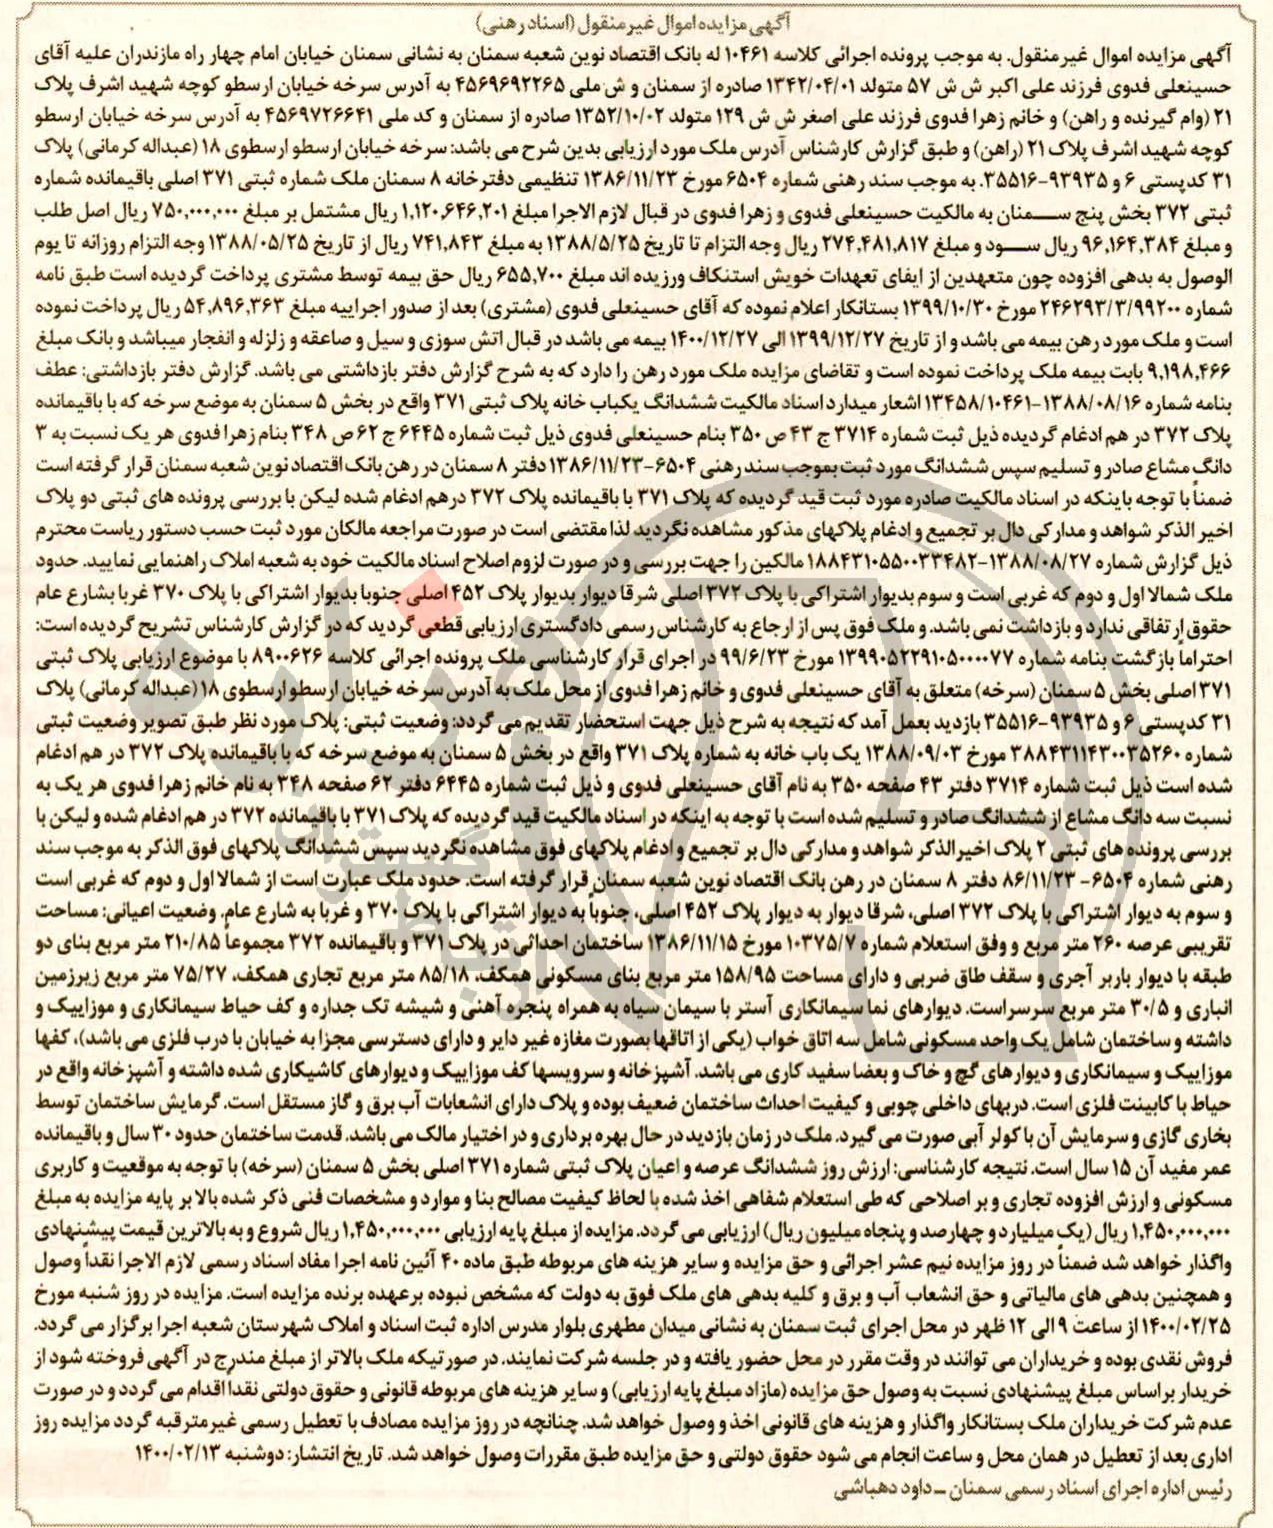 آگهی مزایده اموال غیرمنقول (اسناد رهنی)
آگهی مزایده اموال غیرمنقول. به موجب پرونده اجرائی کلاسه ۱۰۴۶۱ له بانک اقتصاد نوین شعبه سمنان به نشانی سمنان خیابان امام چهار راه مازندران علیه آقای
حسینعلی فدوی فرزند علی اکبر ش ش ۵۷ متولد ۱۳۴۲/۰۴/۰۱ صادره از سمنان و ش ملی ۴۵۶۹۶۹۲۲۶۵ به آدرس سرخه خیابان ارسطو کوچه شهید اشرف پلاک
۲۱ (وام گیرنده و راهن) و خانم زهرا فدوی فرزند علی اصغر ش ش ۱۲۹ متولد ۱۳۵۲/۱۰/۰۲ صادره از سمنان و کد ملی ۴۵۶۹۷۲۶۶۴۱ به آدرس سرخه خیابان ارسطو
کوچه شهید اشرف پلاک ۲۱ (راهن) و طبق گزارش کارشناس آدرس ملک مورد ارزیابی بدین شرح می باشد: سرخه خیابان ارسطو ارسطوی ۱۸ (عبداله کرمانی) پلاک
۳۱ کدپستی ۶ و ۹۳۹۳۵-۳۵۵۱۶. به موجب سند رهنی شماره ۶۵۰۴ مورخ ۱۳۸۶/۱۱/۲۳ تنظیمی دفترخانه ۸ سمنان ملک شماره ثبتی ۳۷۱ اصلی باقیمانده شماره
ثبتی ۳۷۲ بخش پنج سمنان به مالکیت حسینعلی فدوی و زهرا فدوی در قبال لازم الاجرا مبلغ ۱,۱۲۰,۶۴۶,۲۰۱ ریال مشتمل بر مبلغ ۷۵۰,۰۰۰,۰۰۰ ریال اصل طلب
و مبلغ ۹۶,۱۶۴,۳۸۴ ریال سود و مبلغ ۲۷۴,۴۸۱,۸۱۷ ریال وجه التزام تا تاریخ ۱۳۸۸/۵/۲۵ به مبلغ ۷۴۱,۸۴۳ ریال از تاریخ ۱۳۸۸/۰۵/۲۵ وجه التزام روزانه تا یوم
الوصول به بدهی افزوده چون متعهدین از ایفای تعهدات خویش استنکاف ورزیده اند مبلغ ۶۵۵,۷۰۰ ریال حق بیمه توسط مشتری پرداخت گردیده است طبق نامه
شماره ۲۴۶۲۹۳/۳/۹۹۲۰۰ مورخ ۱۳۹۹/۱۰/۳۰ بستانکار اعلام نموده که آقای حسینعلی فدوی (مشتری) بعد از صدور اجراییه مبلغ ۵۴,۸۹۶,۳۶۳ ریال پرداخت نموده
است و ملک مورد رهن بیمه می باشد و از تاریخ ۱۳۹۹/۱۲/۲۷ الی ۱۴۰۰/۱۲/۲۷ بیمه می باشد در قبال اتش سوزی و سیل و صاعقه و زلزله و انفجار میباشد و بانک مبلغ
۹,۱۹۸,۴۶۶ بابت بیمه ملک پرداخت نموده است و تقاضای مزایده ملک مورد رهن را دارد که به شرح گزارش دفتر بازداشتی می باشد. گزارش دفتر بازداشتی: عطف
بنامه شماره ۱۳۸۸/۰۸/۱۶-۱۳۴۵۸/۱۰۴۶۱ اشعار میدارد اسناد مالکیت ششدانگ یکباب خانه پلاک ثبتی ۳۷۱ واقع در بخش ۵ سمنان به موضع سرخه که با باقیمانده
پلاک ۳۷۲ در هم ادغام گردیده ذیل ثبت شماره ۳۷۱۴ ج ۴۳ ص ۳۵۰ بنام حسینعلی فدوی ذیل ثبت شماره ۶۴۴۵ ج ۶۲ ص ۳۴۸ بنام زهرا فدوی هر یک نسبت به ۳
دانگ مشاع صادر و تسلیم سپس ششدانگ مورد ثبت بموجب سند رهنی ۶۵۰۴-۱۳۸۶/۱۱/۲۳ دفتر ۸ سمنان در رهن بانک اقتصاد نوین شعبه سمنان قرار گرفته است
ضمناً با توجه باینکه در اسناد مالکیت صادره مورد ثبت قید گردیده که پلاک ۳۷۱ با باقیمانده پلاک ۳۷۲ درهم ادغام شده لیکن با بررسی پرونده های ثبتی دو پلاک
اخیر الذکر شواهد و مدارکی دال بر تجمیع و ادغام پلاکهای مذکور مشاهده نگردید لذا مقتضی است در صورت مراجعه مالکان مورد ثبت حسب دستور ریاست محترم
ذیل گزارش شماره ۱۳۸۸/۰۸/۲۷-۱۸۸۴۳۱۰۵۵۰۰۳۳۴۸۲ مالکین را جهت بررسی و در صورت لزوم اصلاح اسناد مالکیت خود به شعبه املاک راهنمایی نمایید. حدود
ملک شمالا اول و دوم که غربی است و سوم بدیوار اشتراکی با پلاک ۳۷۲ اصلی شرقا دیوار بدیوار پلاک ۴۵۲ اصلی جنوبا بدیوار اشتراکی با پلاک ۳۷۰ غربا بشارع عام
حقوق ارتفاقی ندارد و بازداشت نمی باشد. و ملک فوق پس از ارجاع به کارشناس رسمی دادگستری ارزیابی قطعی گردید که در گزارش کارشناس تشریح گردیده است:
احتراماً بازگشت بنامه شماره ۱۳۹۹۰۵۲۲۹۱۰۵۰۰۰۰۷۷ مورخ ۹۹/۶/۲۳ در اجرای قرار کارشناسی ملک پرونده اجرائی کلاسه ۸۹۰۰۶۲۶ با موضوع ارزیابی پلاک ثبتی
۳۷۱ اصلی بخش ۵ سمنان (سرخه) متعلق به آقای حسینعلی فدوی و خانم زهرا فدوی از محل ملک به آدرس سرخه خیابان ارسطو ارسطوی ۱۸ (عبداله کرمانی) پلاک
۳۱ کدپستی ۶ و ۹۳۹۳۵-۳۵۵۱۶ بازدید بعمل آمد که نتیجه به شرح ذیل جهت استحضار تقدیم می گردد: وضعیت ثبتی: پلاک مورد نظر طبق تصویر وضعیت ثبتی
شماره ۳۸۸۴۳۱۱۴۳۰۰۳۵۲۶۰ مورخ ۱۳۸۸/۰۹/۰۳ یک باب خانه به شماره پلاک ۳۷۱ واقع در بخش ۵ سمنان به موضع سرخه که با باقیمانده پلاک ۳۷۲ در هم ادغام
شده است ذیل ثبت شماره ۳۷۱۴ دفتر ۴۳ صفحه ۳۵۰ به نام آقای حسینعلی فدوی و ذیل ثبت شماره ۶۴۴۵ دفتر ۶۲ صفحه ۳۴۸ به نام خانم زهرا فدوی هر یک به
نسبت سه دانگ مشاع از ششدانگ صادر و تسلیم شده است با توجه به اینکه در اسناد مالکیت قید گردیده که پلاک ۳۷۱ با باقیمانده ۳۷۲ در هم ادغام شده و لیکن با
بررسی پرونده های ثبتی ۲ پلاک اخیرالذکر شواهد و مدارکی دال بر تجمیع و ادغام پلاکهای فوق مشاهده نگردید سپس ششدانگ پلاکهای فوق الذکر به موجب سند
رهنی شماره ۶۵۰۴- ۸۶/۱۱/۲۳ دفتر ۸ سمنان در رهن بانک اقتصاد نوین شعبه سمنان قرار گرفته است. حدود ملک عبارت است از شمالا اول و دوم که غربی است
و سوم به دیوار اشتراکی با پلاک ۳۷۲ اصلی، شرقا دیوار به دیوار پلاک ۴۵۲ اصلی، جنوباً به دیوار اشتراکی با پلاک ۳۷۰ و غربا به شارع عام. وضعیت اعیانی: مساحت
تقریبی عرصه ۲۶۰ متر مربع و وفق استعلام شماره ۱۰۳۷۵/۷ مورخ ۱۳۸۶/۱۱/۱۵ ساختمان احداثی در پلاک ۳۷۱ و باقیمانده ۳۷۲ مجموعاً ۲۱۰/۸۵ متر مربع بنای دو
طبقه با دیوار باربر آجری و سقف طاق ضربی و دارای مساحت ۱۵۸/۹۵ متر مربع بنای مسکونی همکف، ۸۵/۱۸ متر مربع تجاری همکف، ۷۵/۲۷ متر مربع زیرزمین
انباری و ۳۰/۵ متر مربع سرسراست. دیوارهای نما سیمانکاری آستر با سیمان سیاه به همراه پنجره آهنی و شیشه تک جداره و کف حیاط سیمانکاری و موزاییک و
داشته و ساختمان شامل یک واحد مسکونی شامل سه اتاق خواب (یکی از اتاقها بصورت مغازه غیر دایر و دارای دسترسی مجزا به خیابان با درب فلزی می باشد)، کفها
موزاییک و سیمانکاری و دیوارهای گچ و خاک و بعضا سفید کاری می باشد. آشپزخانه و سرویسها کف موزاییک و دیوارهای کاشیکاری شده داشته و آشپزخانه واقع در
حیاط با کابینت فلزی است. دربهای داخلی چوبی و کیفیت احداث ساختمان ضعیف بوده و پلاک دارای انشعابات آب برق و گاز مستقل است. گرمایش ساختمان توسط
بخاری گازی و سرمایش آن با کولر آبی صورت می گیرد. ملک در زمان بازدید در حال بهره برداری و در اختیار مالک می باشد. قدمت ساختمان حدود ۳۰ سال و باقیمانده
عمر مفید آن ۱۵ سال است. نتیجه کارشناسی: ارزش روز ششدانگ عرصه و اعیان پلاک ثبتی شماره ۳۷۱ اصلی بخش ۵ سمنان (سرخه) با توجه به موقعیت و کاربری
مسکونی و ارزش افزوده تجاری و بر اصلاحی که طی استعلام شفاهی اخذ شده با لحاظ کیفیت مصالح بنا و موارد و مشخصات فنی ذکر شده بالا بر پایه مزایده به مبلغ
۱,۴۵۰,۰۰۰,۰۰۰ ریال (یک میلیارد و چهارصد و پنجاه میلیون ریال) ارزیابی می گردد. مزایده از مبلغ پایه ارزیابی ۱,۴۵۰,۰۰۰,۰۰۰ ریال شروع و به بالاترین قیمت پیشنهادی
واگذار خواهد شد ضمناً در روز مزایده نیم عشر اجرائی و حق مزایده و سایر هزینه های مربوطه طبق ماده ۴۰ آئین نامه اجرا مفاد اسناد رسمی لازم الاجرا نقداً وصول
و همچنین بدهی های مالیاتی و حق انشعاب آب و برق و کلیه بدهی های ملک فوق به دولت که مشخص نبوده برعهده برنده مزایده است. مزایده در روز شنبه مورخ
۱۴۰۰/۰۲/۲۵ از ساعت ۹ الی ۱۲ ظهر در محل اجرای ثبت سمنان به نشانی میدان مطهری بلوار مدرس اداره ثبت اسناد و املاک شهرستان شعبه اجرا برگزار می گردد.
فروش نقدی بوده و خریداران می توانند در وقت مقرر در محل حضور یافته و در جلسه شرکت نمایند. در صورتیکه ملک بالاتر از مبلغ مندرج در آگهی فروخته شود از
خریدار براساس مبلغ پیشنهادی نسبت به وصول حق مزایده (مازاد مبلغ پایه ارزیابی) و سایر هزینه های مربوطه قانونی و حقوق دولتی نقداً اقدام می گردد و در صورت
عدم شرکت خریداران ملک بستانکار واگذار و هزینه های قانونی اخذ و وصول خواهد شد. چنانچه در روز مزایده مصادف با تعطیل رسمی غیرمترقبه گردد مزایده روز
اداری بعد از تعطیل در همان محل و ساعت انجام می شود حقوق دولتی و حق مزایده طبق مقررات وصول خواهد شد. تاریخ انتشار: دوشنبه ۱۴۰۰/۰۲/۱۳
رئیس اداره اجرای اسناد رسمی سمنان – داود دهباشی